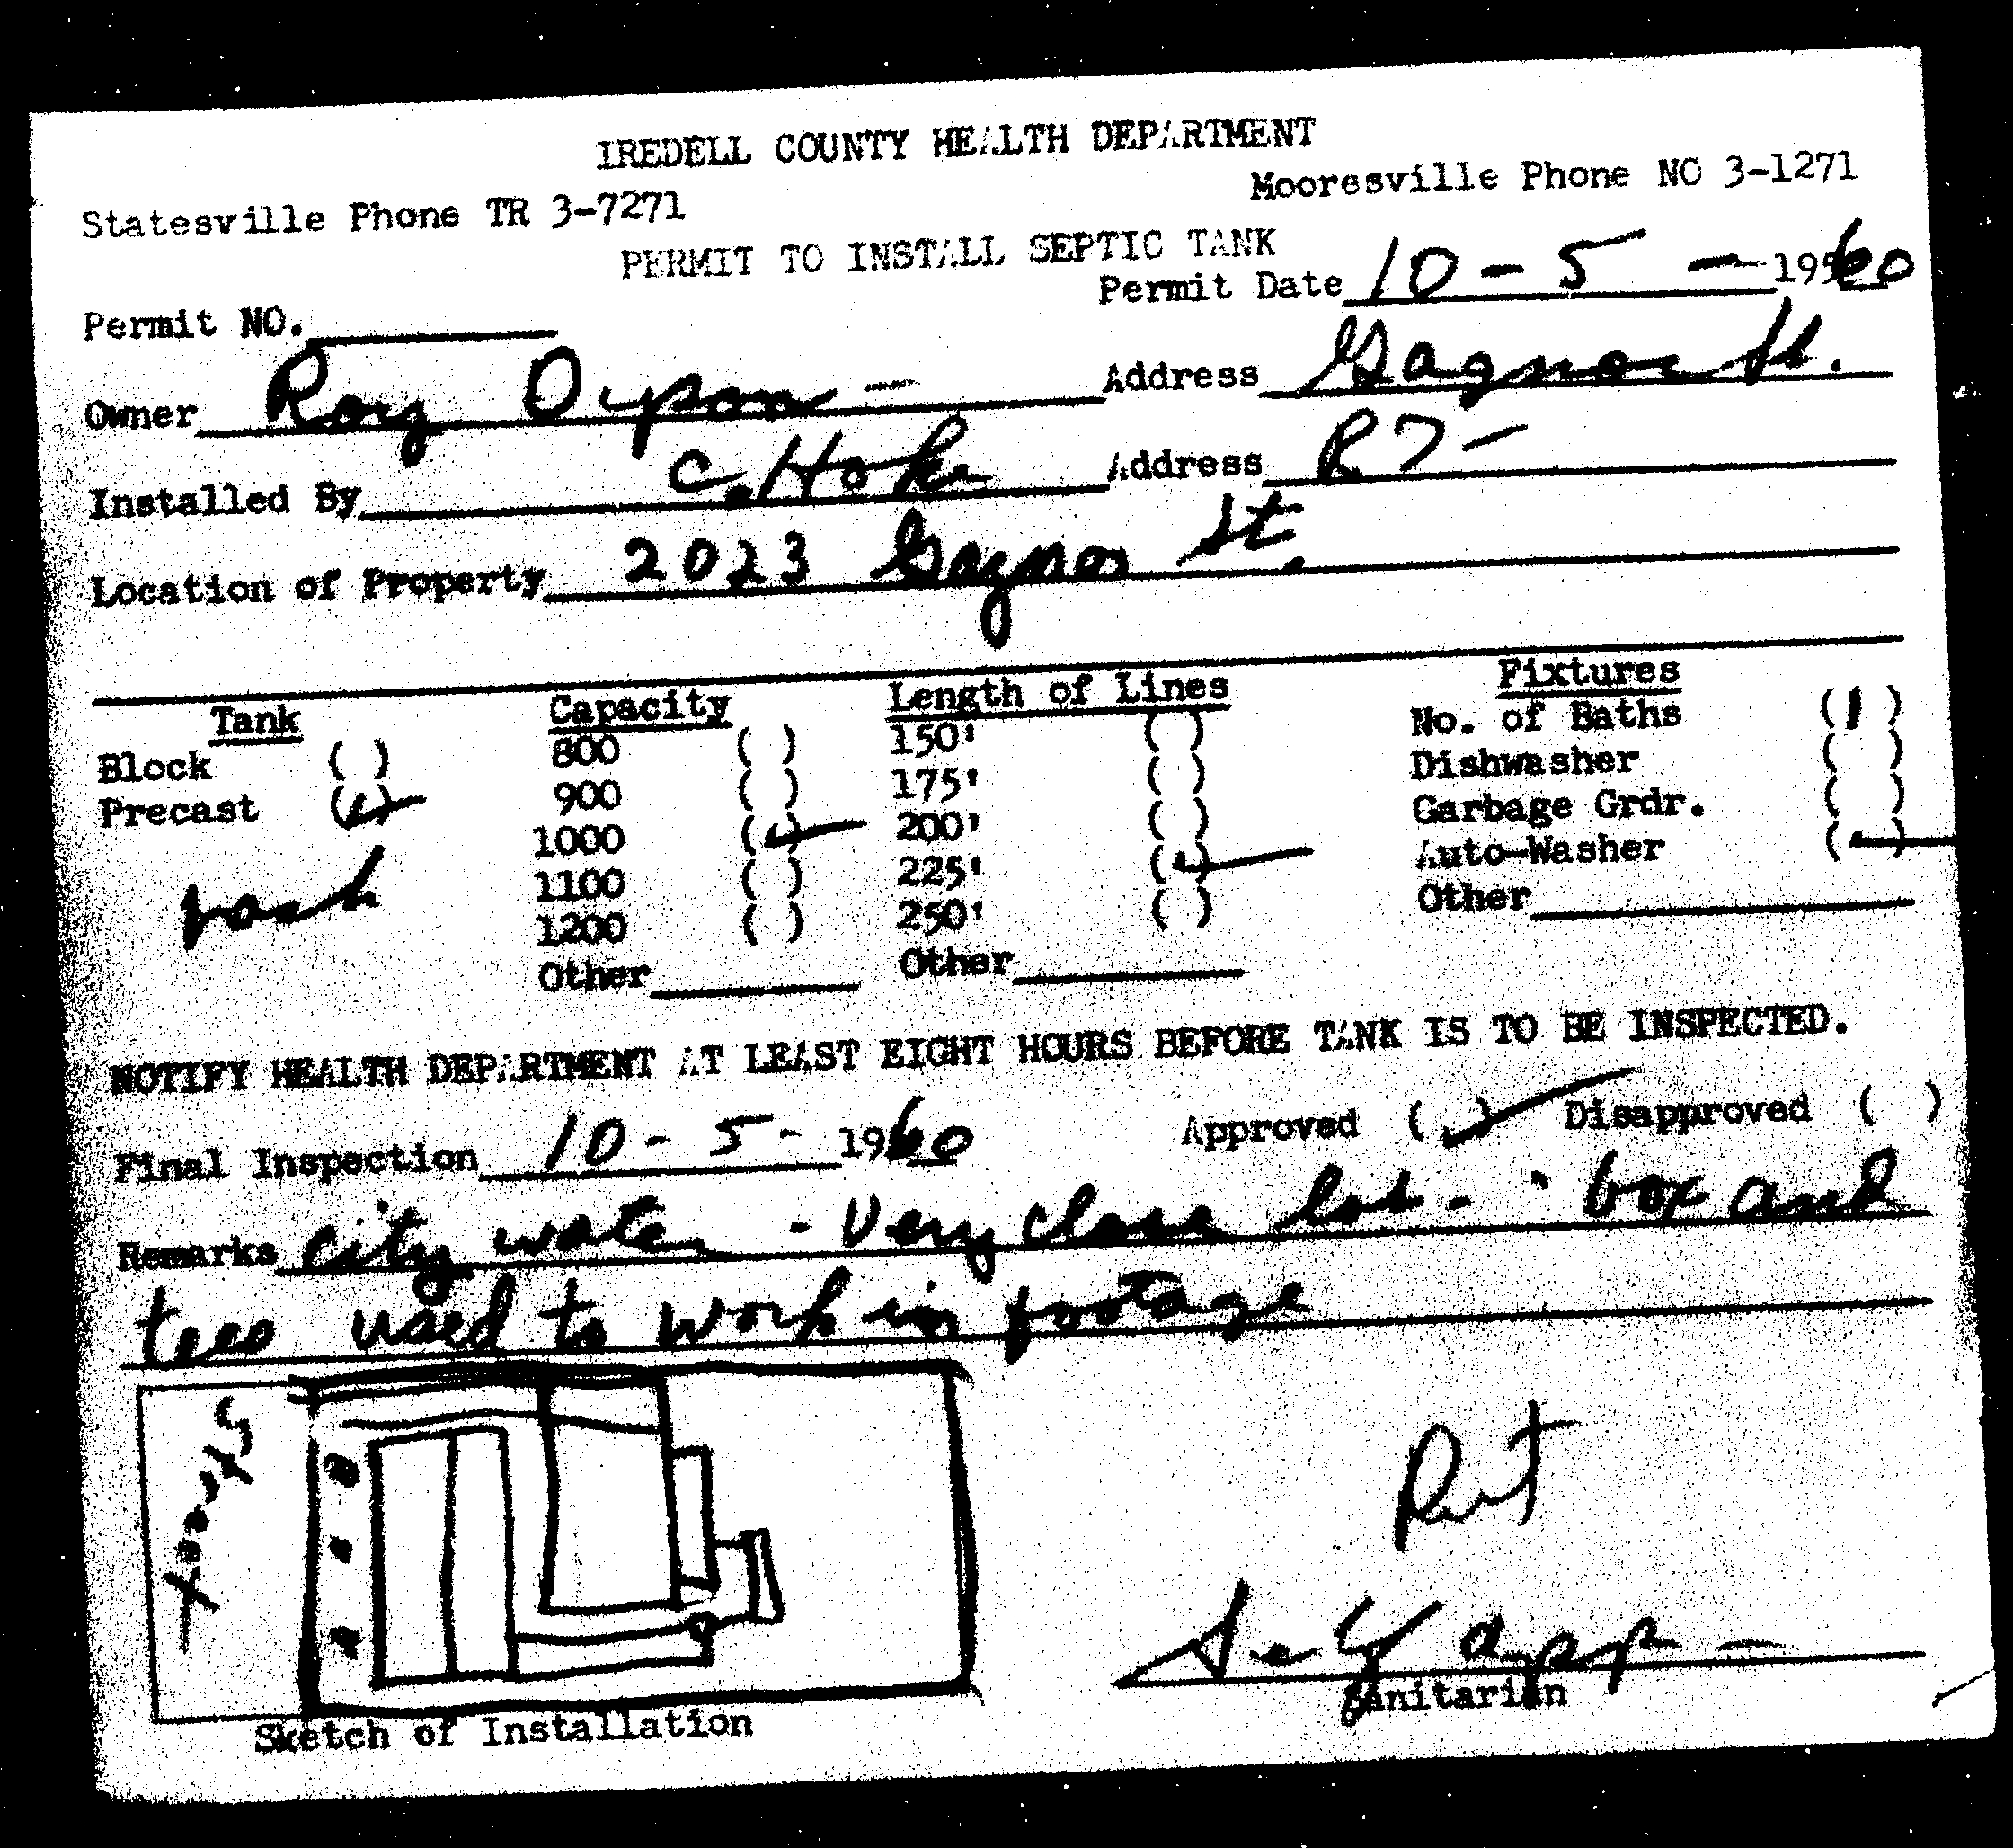 IREDELL COUNTY HEALTH DEPARTMENT
Statesville Phone TR 3-7271 Mooresville Phone NO 3-1271
PERMIT TO INSTALL SEPTIC TANK
Permit NO. Permit Date 10-5-1960
Owner Roy Address
Installed By C. Hoke Address R7-
Location of Property 2023 St.
Tank Capacity Length of Lines Fixtures
Block ( ) 800 ( ) 150' ( ) No. of Baths (1)
Precast (✓) 900 ( ) 175' ( ) Dishwasher ( )
1000 (✓) 200' ( ) Garbage Grdr. ( )
1100 ( ) 225' (✓) Auto-Washer (✓)
1200 ( ) 250' ( ) Other
Other Other
NOTIFY HEALTH DEPARTMENT AT LEAST EIGHT HOURS BEFORE TANK IS TO BE INSPECTED.
Final Inspection 10-5-1960 Approved (✓) Disapproved ( )
Remarks city water - Very close lot - box and
tees used to work in footage
Sanitarian
Sketch of Installation